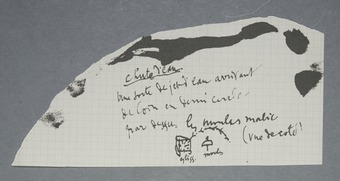 chute d'eau
Une sorte de jet d'eau arrivant
de loin en demi cercle -
par dessus les moules malic
(vue de coté)
gliss. moules